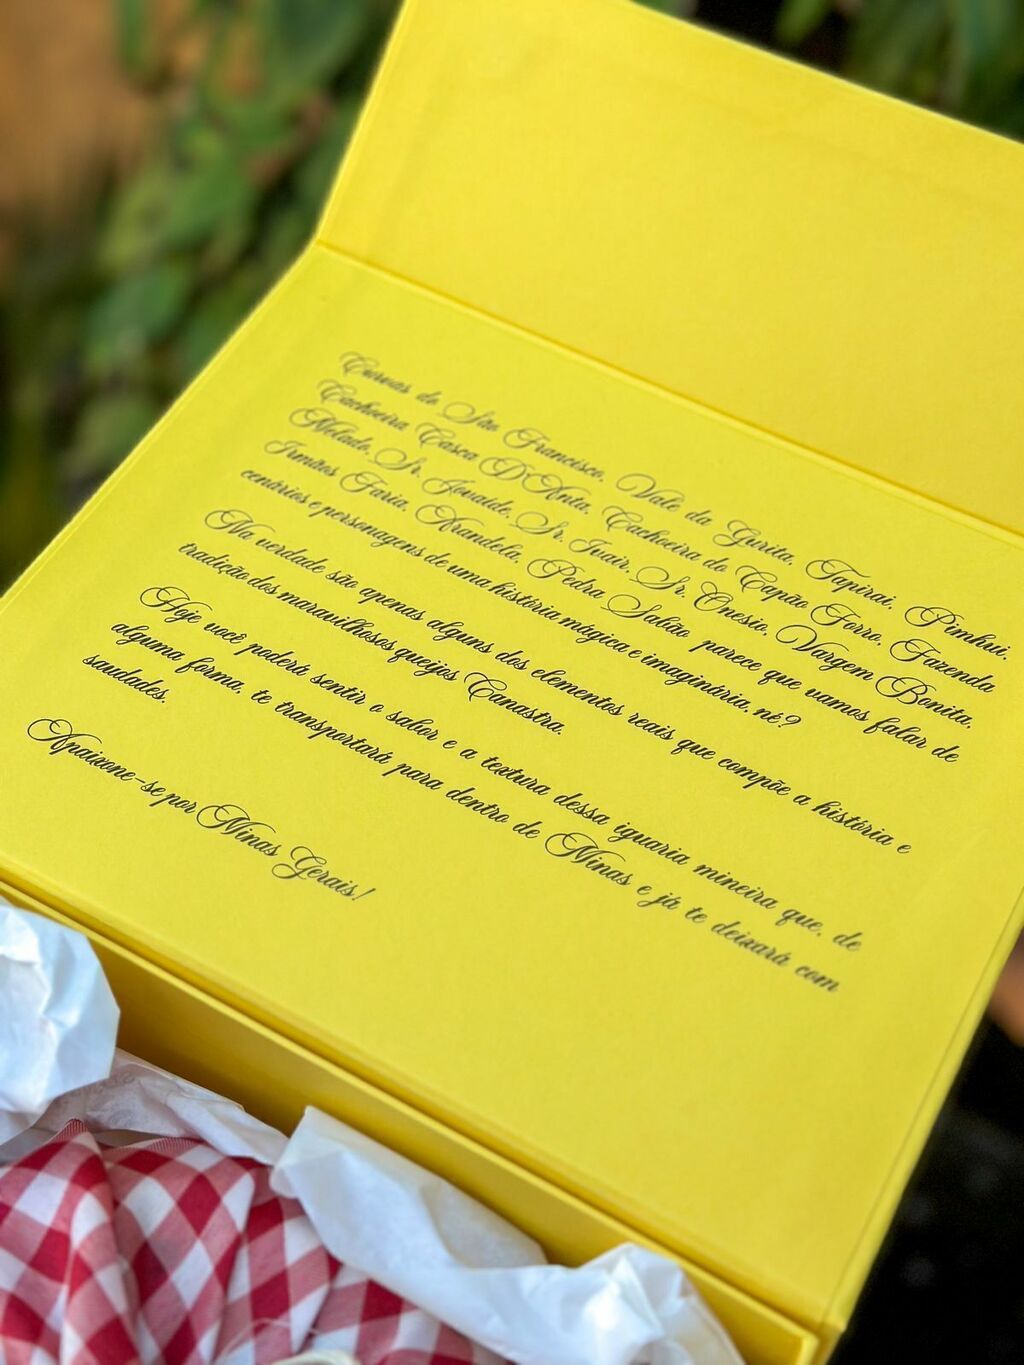 Curvas do São Francisco, Vale da Gurita, Tapirai, Pimhui,
Cachoeira Casca D'Anta, Cachoeira do Capão Forro, Fazenda
Nolado, Sr. Jovaide, Sr. Ivair, Sr. Onesio, Vargem Bonita,
Irmãos Faria, Arandela, Pedra Sabão, parece que vamos falar de
cenários e personagens de uma história mágica e imaginária, né?
Na verdade são apenas alguns dos elementos reais que compõe a história e
tradição dos maravilhosos queijos Canastra.
Hoje você poderá sentir o sabor e a textura dessa iguaria mineira que, de
alguma forma, te transportará para dentro de Minas e já te deixará com
saudades.
Apaixone-se por Minas Gerais!